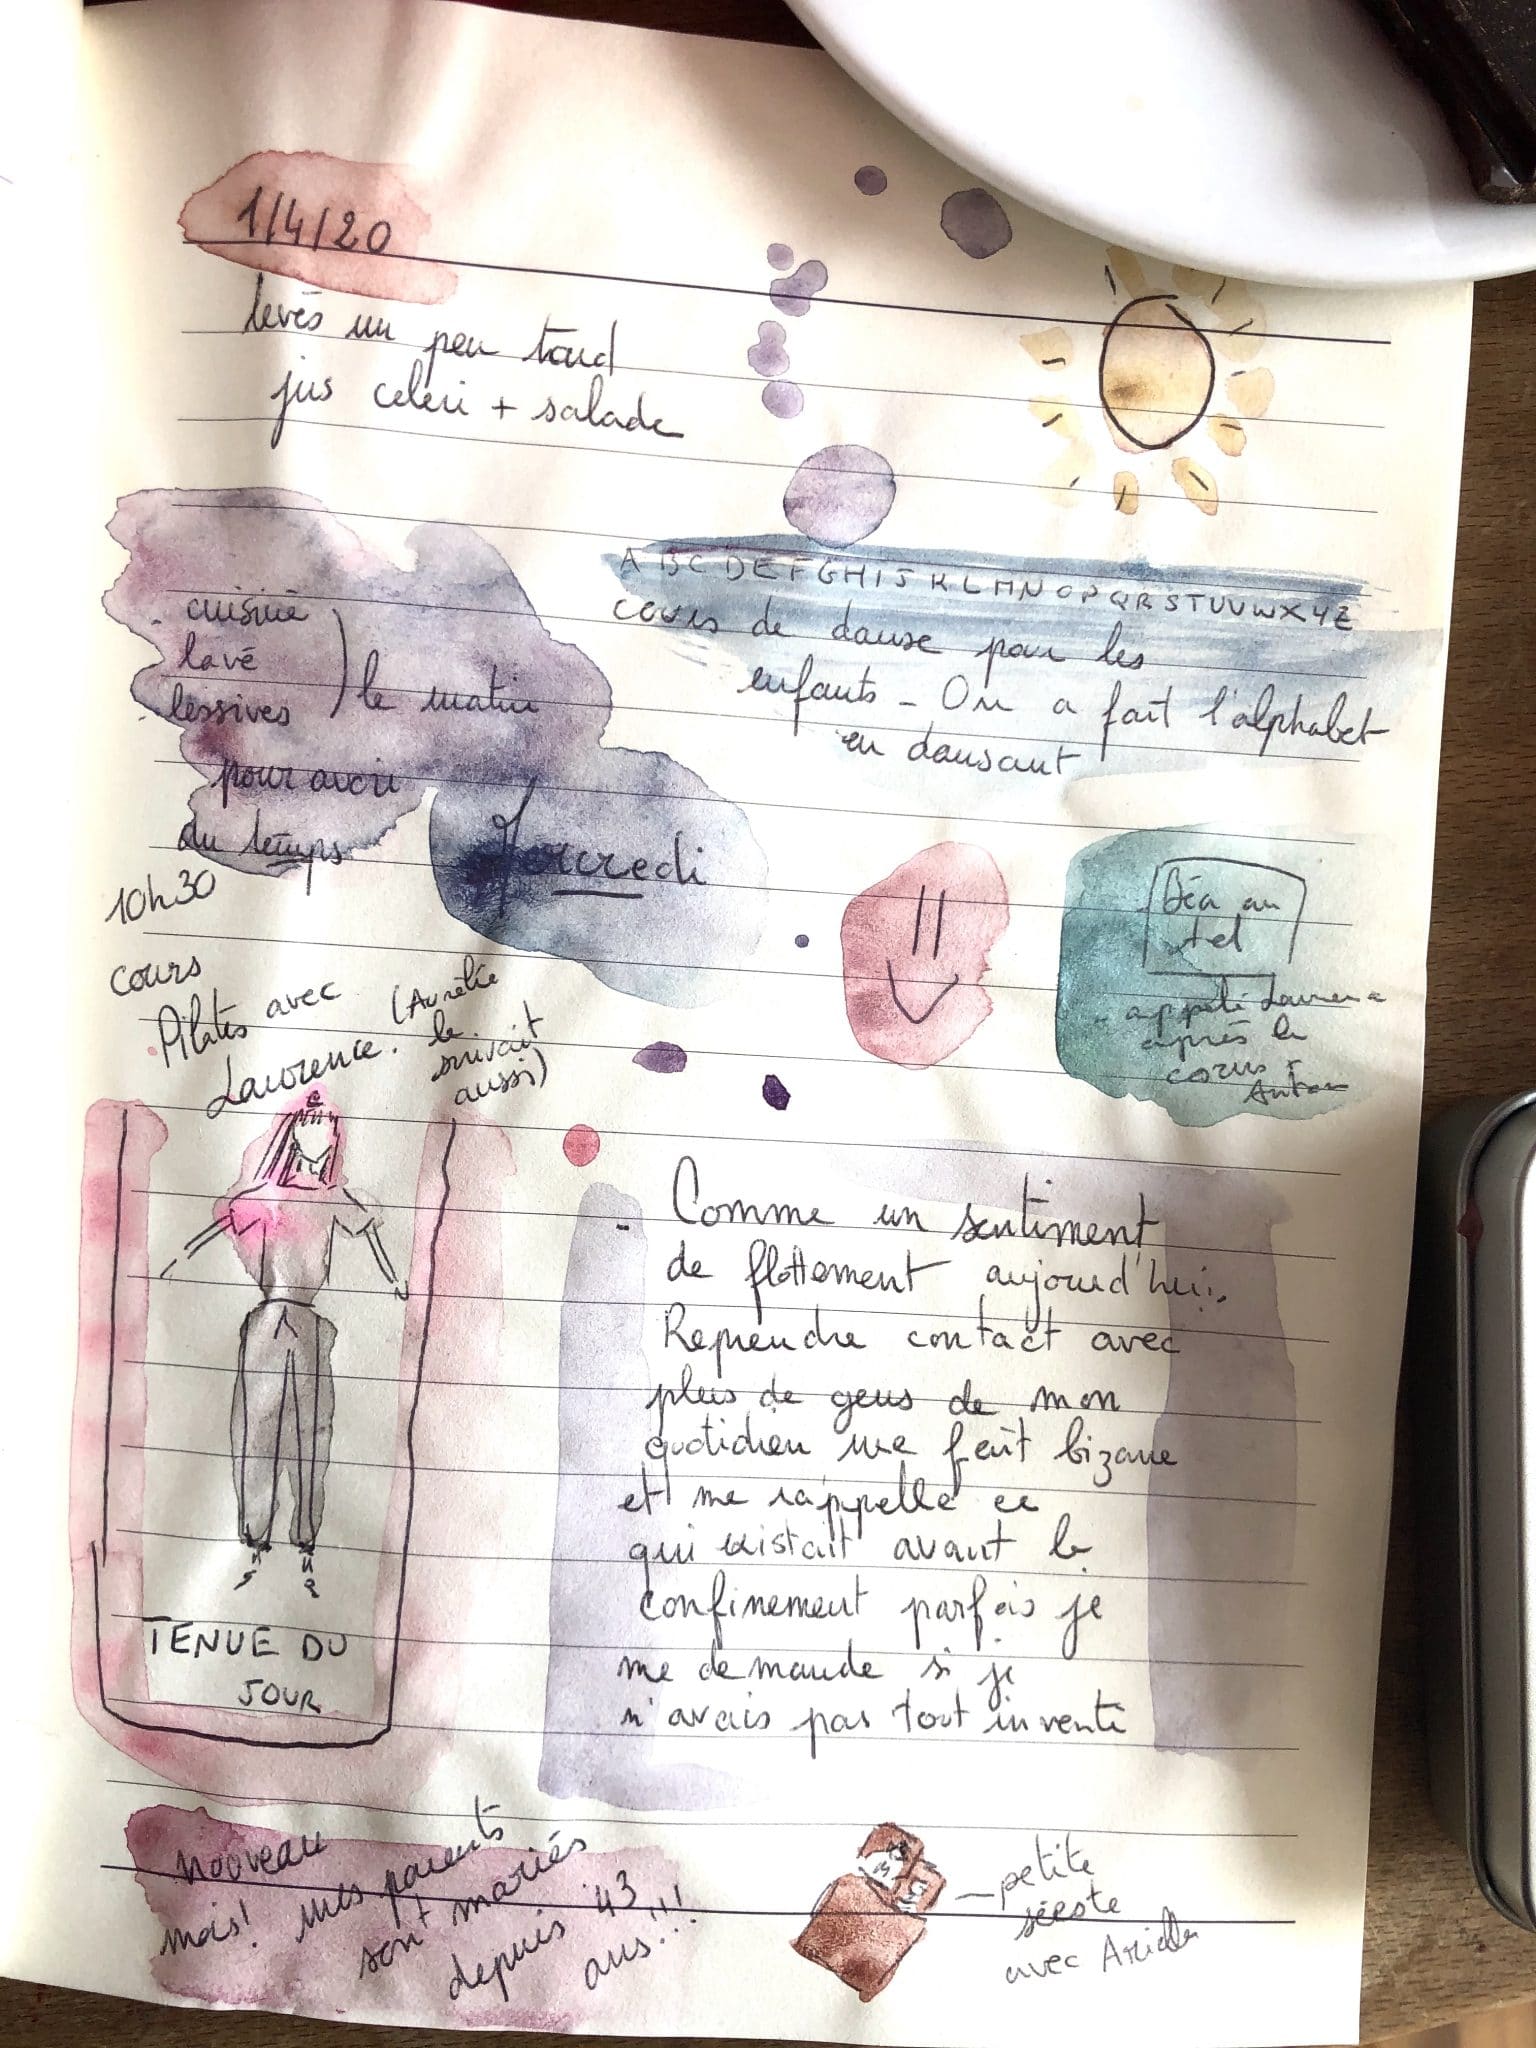 1/4/20
levés un peu tard
jus celeri + salade
A B C D E F G H I J K L M N O P Q R S T U V W X Y Z
cours de danse pour les
enfants - On a fait l'alphabet
en dansant
- cuisine
lavé
lessives
le matin
pour avoir
du temps
Mercredi
10h30
cours
Pilates avec
Laurence.
(Aurélie
le
suivait
aussi)
Béa au
tel
- appelé Laurence
après le
cours +
TENUE DU
JOUR
- Comme un sentiment
de flottement aujourd'hui.
Reprendre contact avec
plus de gens de mon
quotidien me fait bizarre
et me rappelle ce
qui existait avant le
confinement parfois je
me demande si je
n'avais pas tout inventé
nouveau
mois! mes parents
sont mariés
depuis 43
ans!!!
petite
sieste
avec